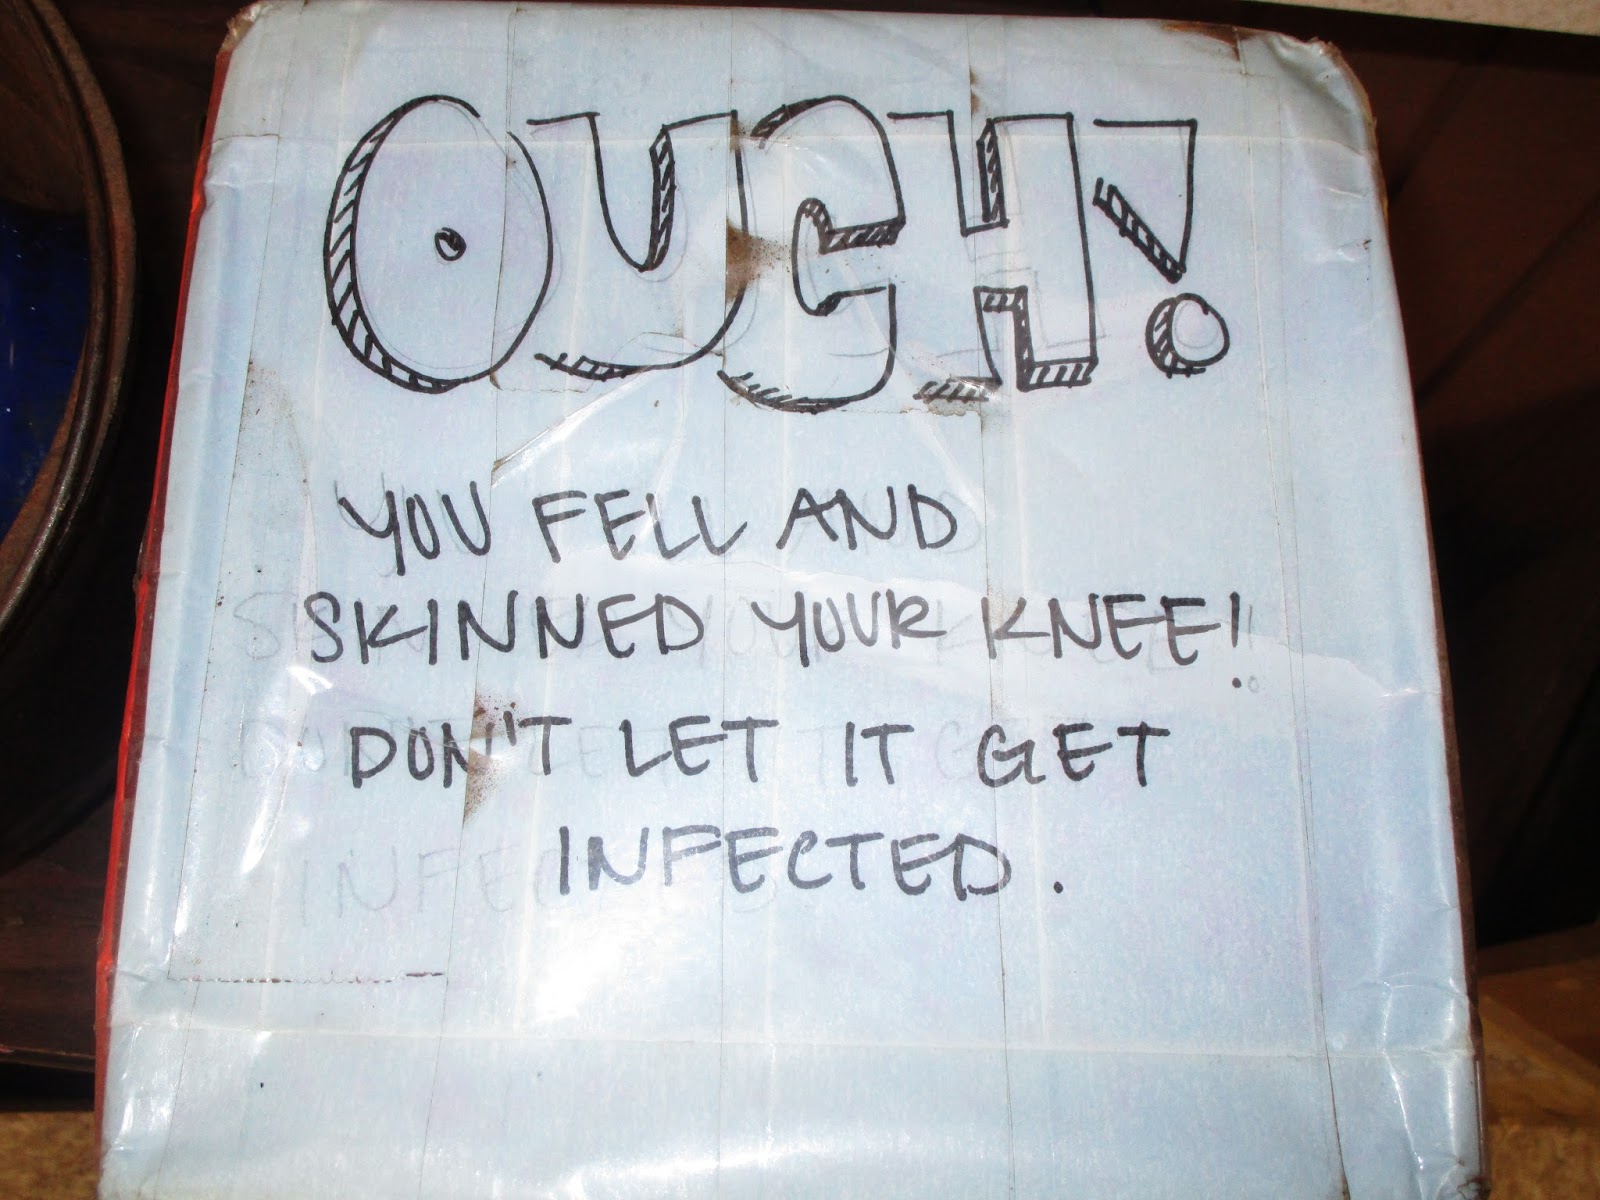 OUCH!
YOU FELL AND
SKINNED YOUR KNEE!
DON'T LET IT GET
INFECTED.